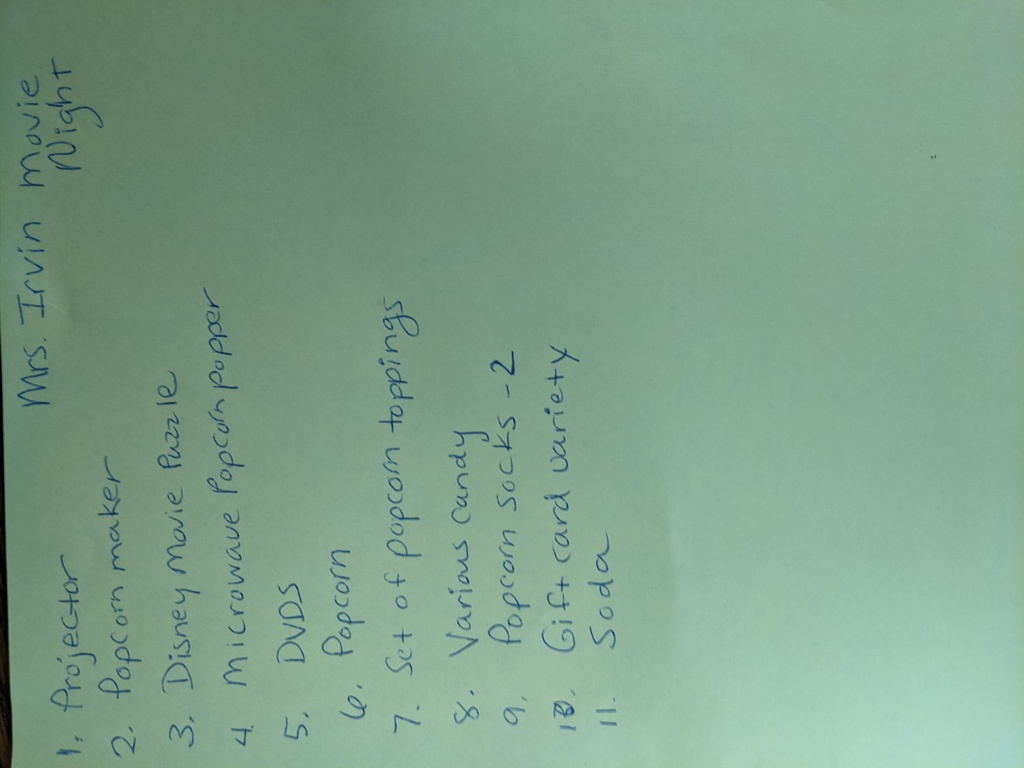 Mrs. Irvin movie
Night
1. Projector
2. Popcorn maker
3. Disney Movie Puzzle
4 Microwave Popcorn popper
5. DVDS
6. Popcorn
7. Set of popcorn toppings
8. Various candy
9. Popcorn socks - 2
10. Gift card variety
11. Soda